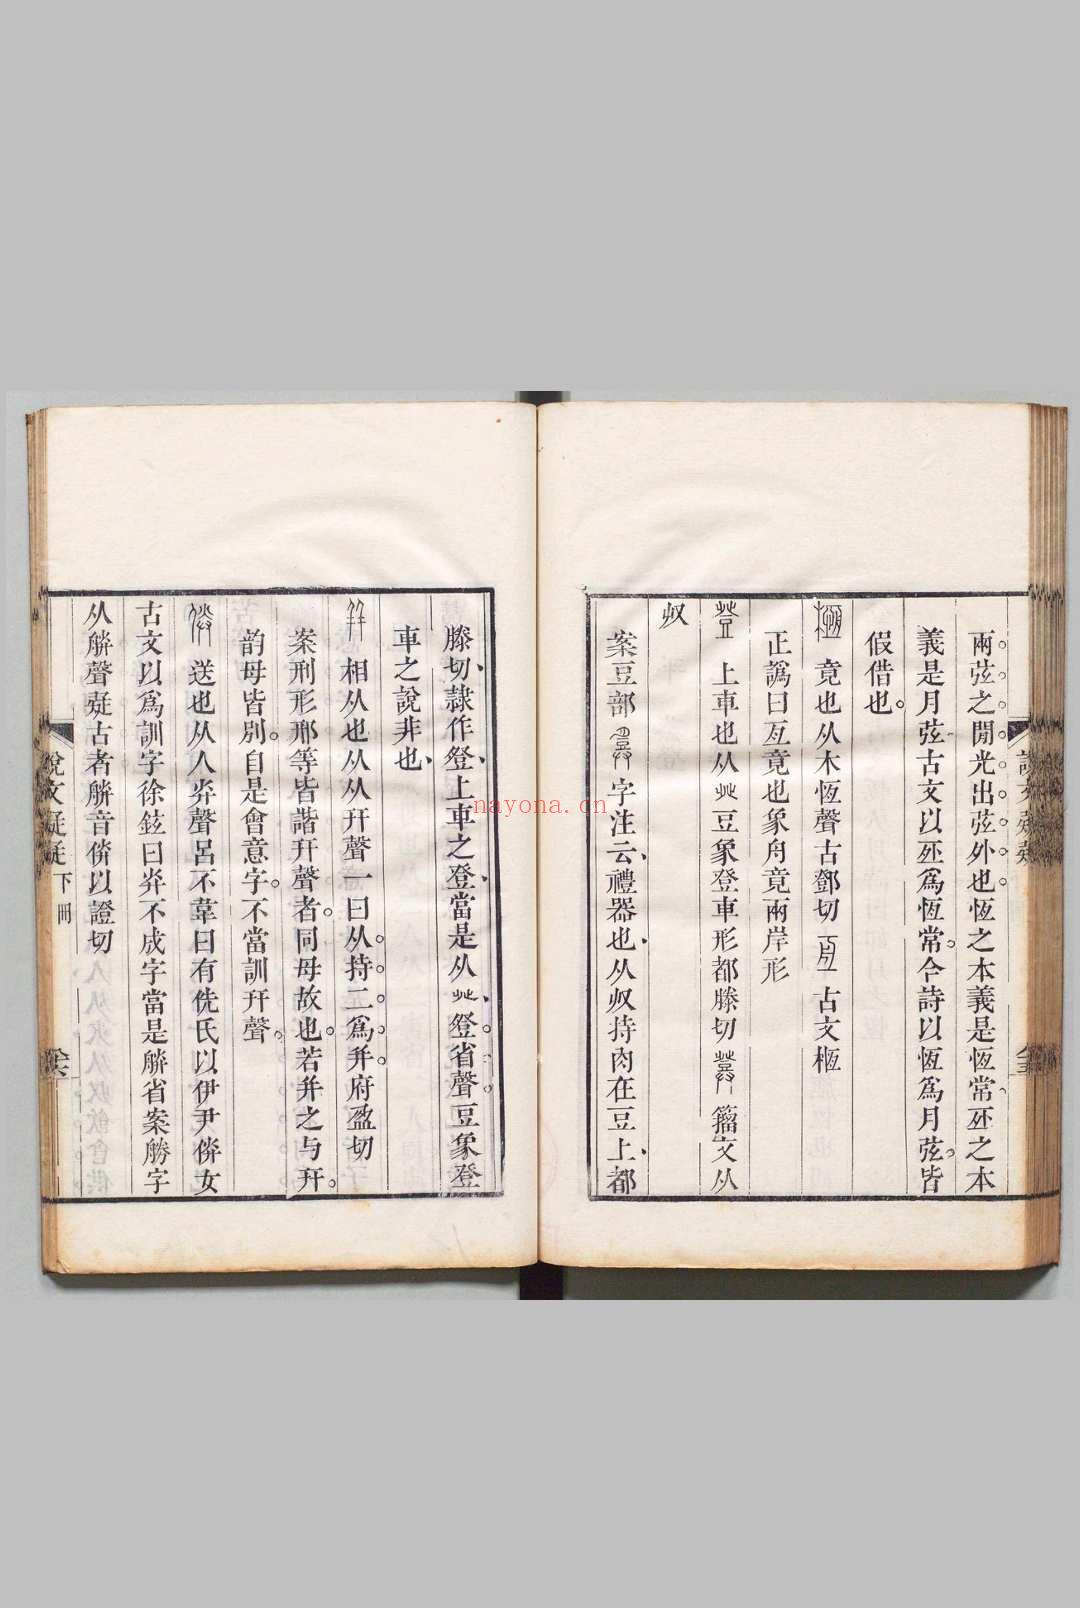 兩弦之閒光出弦外也恆之本義是恆常𠄨之本
義是月弦古文以𠄨爲恆常今詩以恆爲月弦皆
假借也
竟也从木恆聲古鄧切 古文㮓
正譌曰亙竟也象舟竟兩岸形
上車也从癶豆象登車形都滕切 籀文从
収
案豆部 字注云禮器也从収持肉在豆上都
滕切隸作登上車之登當是从癶 省聲豆象登
車之說非也
相从也从从幵聲一曰从持二爲幷府盈切
案刑形邢等皆諧幵聲者同母故也若幷之与幵
韵母皆別自是會意字不當訓幵聲
送也从人灷聲呂不韋曰有侁氏以伊尹㑞女
古文以爲訓字徐鉉曰灷不成字當是朕省案勝字
从朕聲疑古者朕音㑞以證切
說文疑疑 下冊
nayona.cn